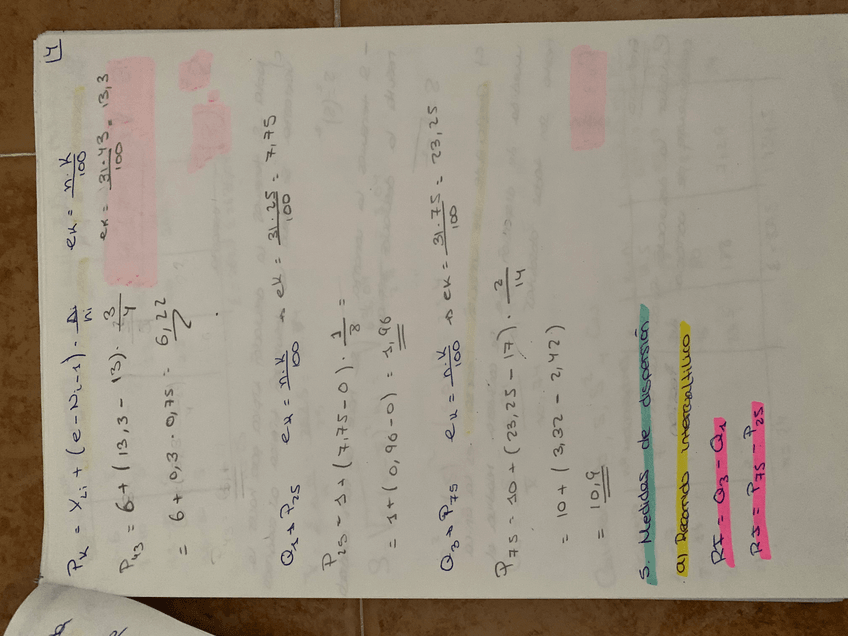 4
Pk = XLi + (e - Ni-1) · Δ/ni    ek = n·k/100
P43 = 6 + (13,3 - 13) · 3/4    ek = 31·43/100 = 13,3
= 6 + 0,3 · 0,75 = 6,22
Q1 → P25    ek = n·k/100 → ek = 31·25/100 = 7,75
P25 - 1 + (7,75 - 0) · 1/8 =
= 1 + (0,96 - 0) = 1,96
Q3 → P75    ek = n·k/100 → ek = 31·75/100 = 23,25
P75 = 10 + (23,25 - 17) · 2/14
= 10 + (3,32 - 2,42)
= 10,9
5. Medidas de dispersión
a) Recorrido intercualtílico
RI = Q3 - Q1
RI = P75 - P25